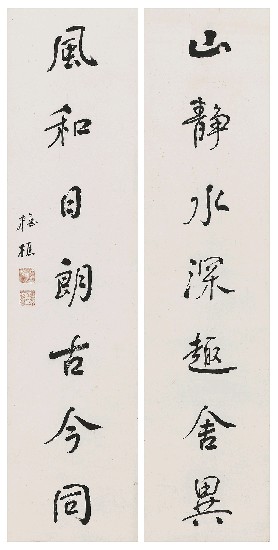 山靜水深趣舍異
風和日朗古今同